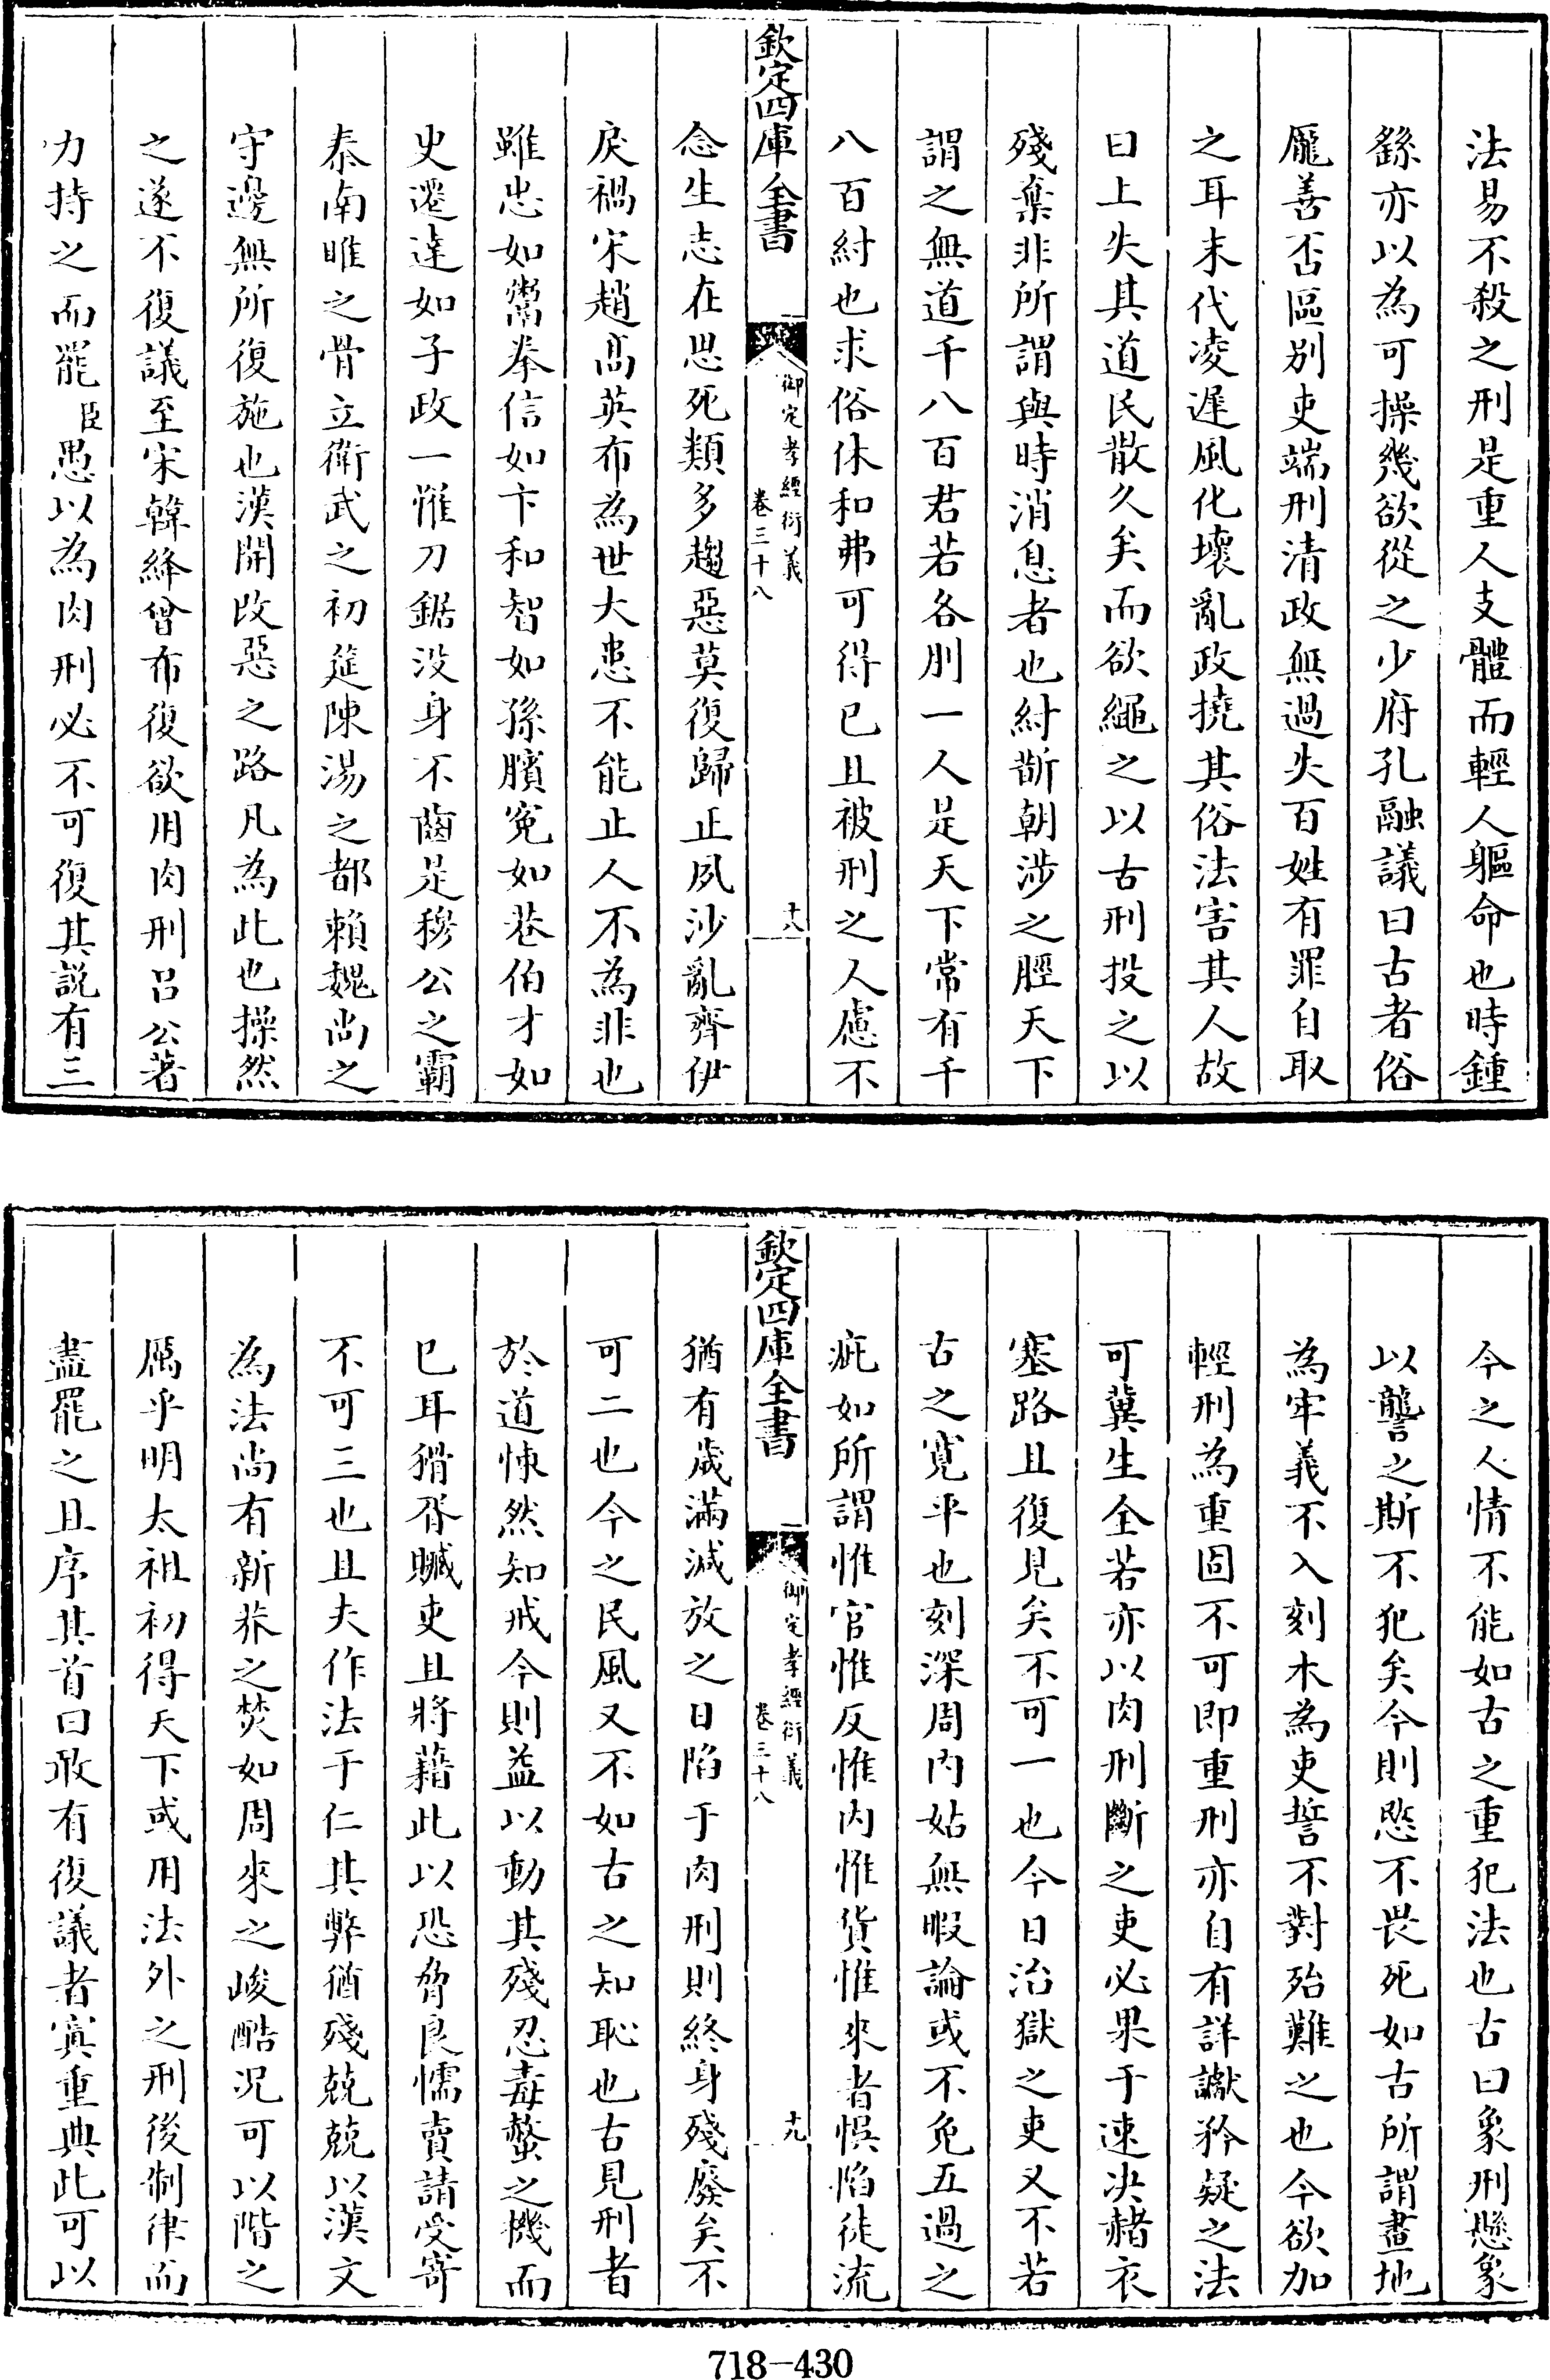 法易不殺之刑是重人支體而輕人軀命也時鍾
繇亦以為可操幾欲從之少府孔融議曰古者俗
厖善否區别吏端刑清政無過失百姓有罪自取
之耳末代凌遲風化壞亂政撓其俗法害其人故
曰上失其道民散久矣而欲繩之以古刑投之以
殘棄非所謂與時消息者也紂斮朝涉之脛天下
謂之無道千八百君若各刖一人是天下常有千
八百紂也求俗休和弗可得已且被刑之人慮不
欽定四庫全書
御定孝經衍義
卷三十八
十八
念生志在思死類多趨惡莫復歸正夙沙亂齊伊
戾禍宋趙髙英布為世大患不能止人不為非也
雖忠如鬻拳信如卞和智如孫臏寃如巷伯才如
史遷達如子政一惟刀鋸没身不齒是穆公之霸
秦南睢之骨立衛武之初筵陳湯之都賴魏尚之
守邊無所復施也漢開改惡之路凡為此也操然
之遂不復議至宋韓絳曾布復欲用肉刑吕公著
力持之而罷臣愚以為肉刑必不可復其説有三
今之人情不能如古之重犯法也古曰象刑懸象
以讋之斯不犯矣今則愍不畏死如古所謂畫地
為牢義不入刻木為吏誓不對殆難之也今欲加
輕刑為重固不可即重刑亦自有詳讞矜疑之法
可冀生全若亦以肉刑斷之吏必果于速决赭衣
塞路且復見矣不可一也今日治獄之吏又不若
古之寛平也刻深周内姑無暇論或不免五過之
疵如所謂惟官惟反惟内惟貨惟來者悞陷徒流
欽定四庫全書
御定孝經衍義
卷三十八
十九
猶有歲滿減放之日陷于肉刑則終身殘廢矣不
可二也今之民風又不如古之知恥也古見刑者
於道悚然知戒今則益以動其殘忍毒螫之機而
已耳猾胥贓吏且將藉此以恐脅良懦賣請受寄
不可三也且夫作法于仁其弊猶殘兢兢以漢文
為法尚有新莽之焚如周來之峻酷况可以階之
厲乎明太祖初得天下或用法外之刑後制律而
盡罷之且序其首曰敢有復議者寘重典此可以
718-430